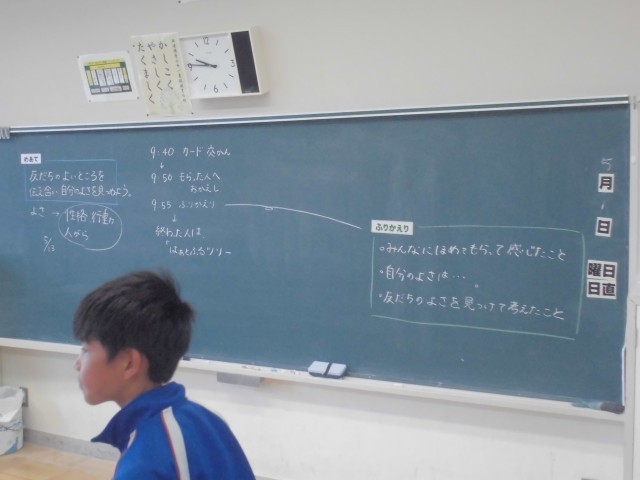 かしこく
やさしく
たくましく
めあて
友だちのよいところを
伝え合い自分のよさを見つめよう。
よさ → 性格 行動
人がら
9:40 カード交かん
↓
9:50 もらった人へ
おかえし
9:55 ふりかえり
↓
終わった人は
はあとふるツリー
ふりかえり
・みんなにほめてもらって感じたこと
・自分のよさは…
・友だちのよさを見つけて考えたこと
5
月
日
曜日
日直